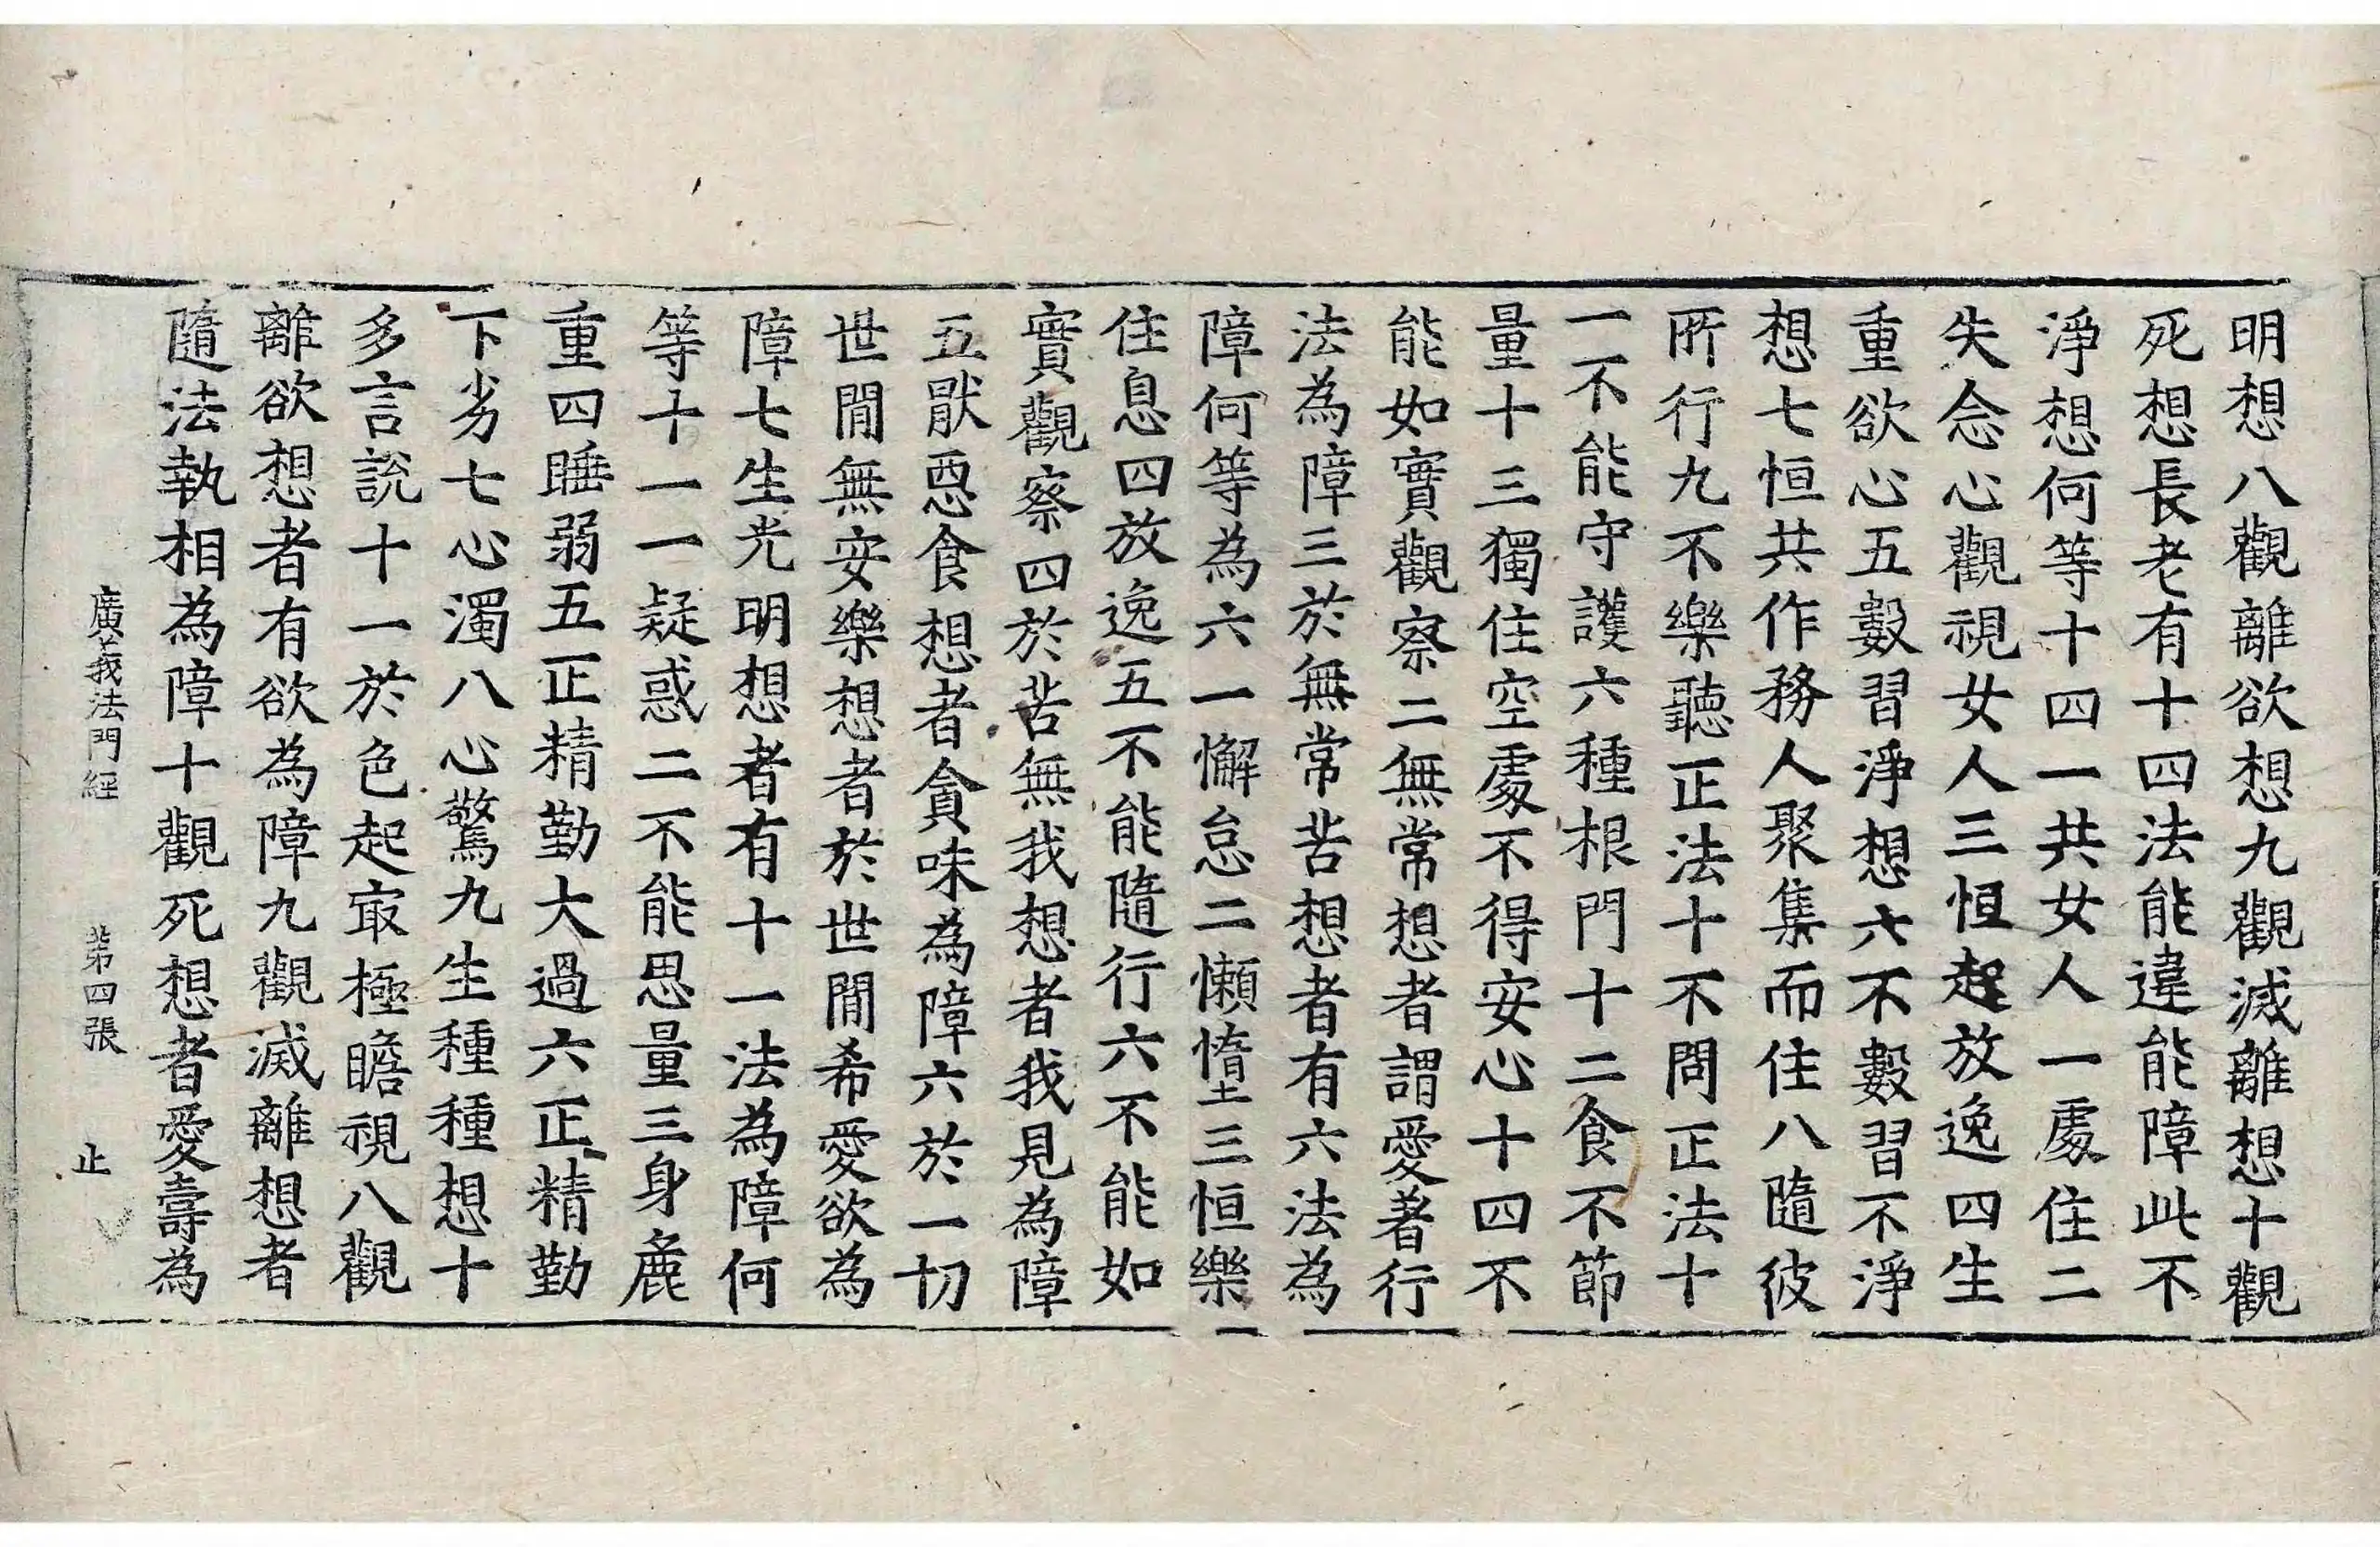 明想八觀離欲想九觀滅離想十觀
死想長老有十四法能違能障此不
淨想何等十四一共女人一處住二
失念心觀視女人三恒起放逸四生
重欲心五數習淨想六不數習不淨
想七恒共作務人聚集而住八隨彼
所行九不樂聽正法十不問正法十
一不能守護六種根門十二食不節
量十三獨住空處不得安心十四不
能如實觀察二無常想者謂愛著行
法為障三於無常苦想者有六法為
障何等為六一懈怠二懶惰三恒樂
住息四放逸五不能隨行六不能如
實觀察四於苦無我想者我見為障
五猒惡食想者貪味為障六於一切
世閒無安樂想者於世閒希愛欲為
障七生光明想者有十一法為障何
等十一一疑惑二不能思量三身麁
重四睡弱五正精勤大過六正精勤
下劣七心濁八心驚九生種種想十
多言說十一於色起冣極瞻視八觀
離欲想者有欲為障九觀滅離想者
隨法執相為障十觀死想者愛壽為
廣義法門經 第四張 止